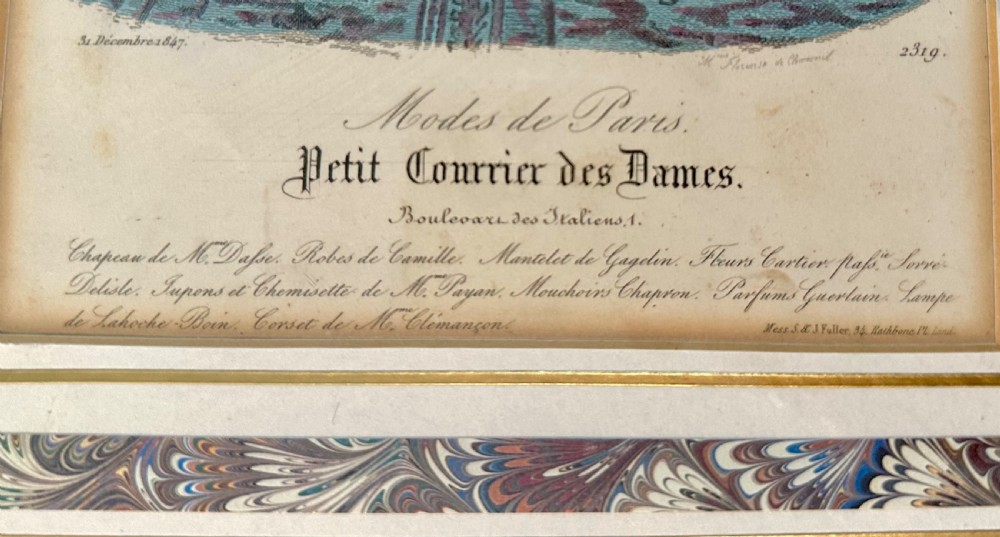 31 Décembre 1847.
2319.
Modes de Paris.
Petit Courrier des Dames.
Boulevart des Italiens, 1.
Chapeau de Mme. Dasse. Robes de Camille. Mantelet de Gagelin. Fleurs Cartier. passge.
Delisle. Jupons et Chemisette de Mme. Payan. Mouchoirs Chapron. Parfums Guerlain. Lampe
de Lahoche-Boin. Corset de Mme. Clémançon.
Mess. S. & J. Fuller, 34, Rathbone, Pl.